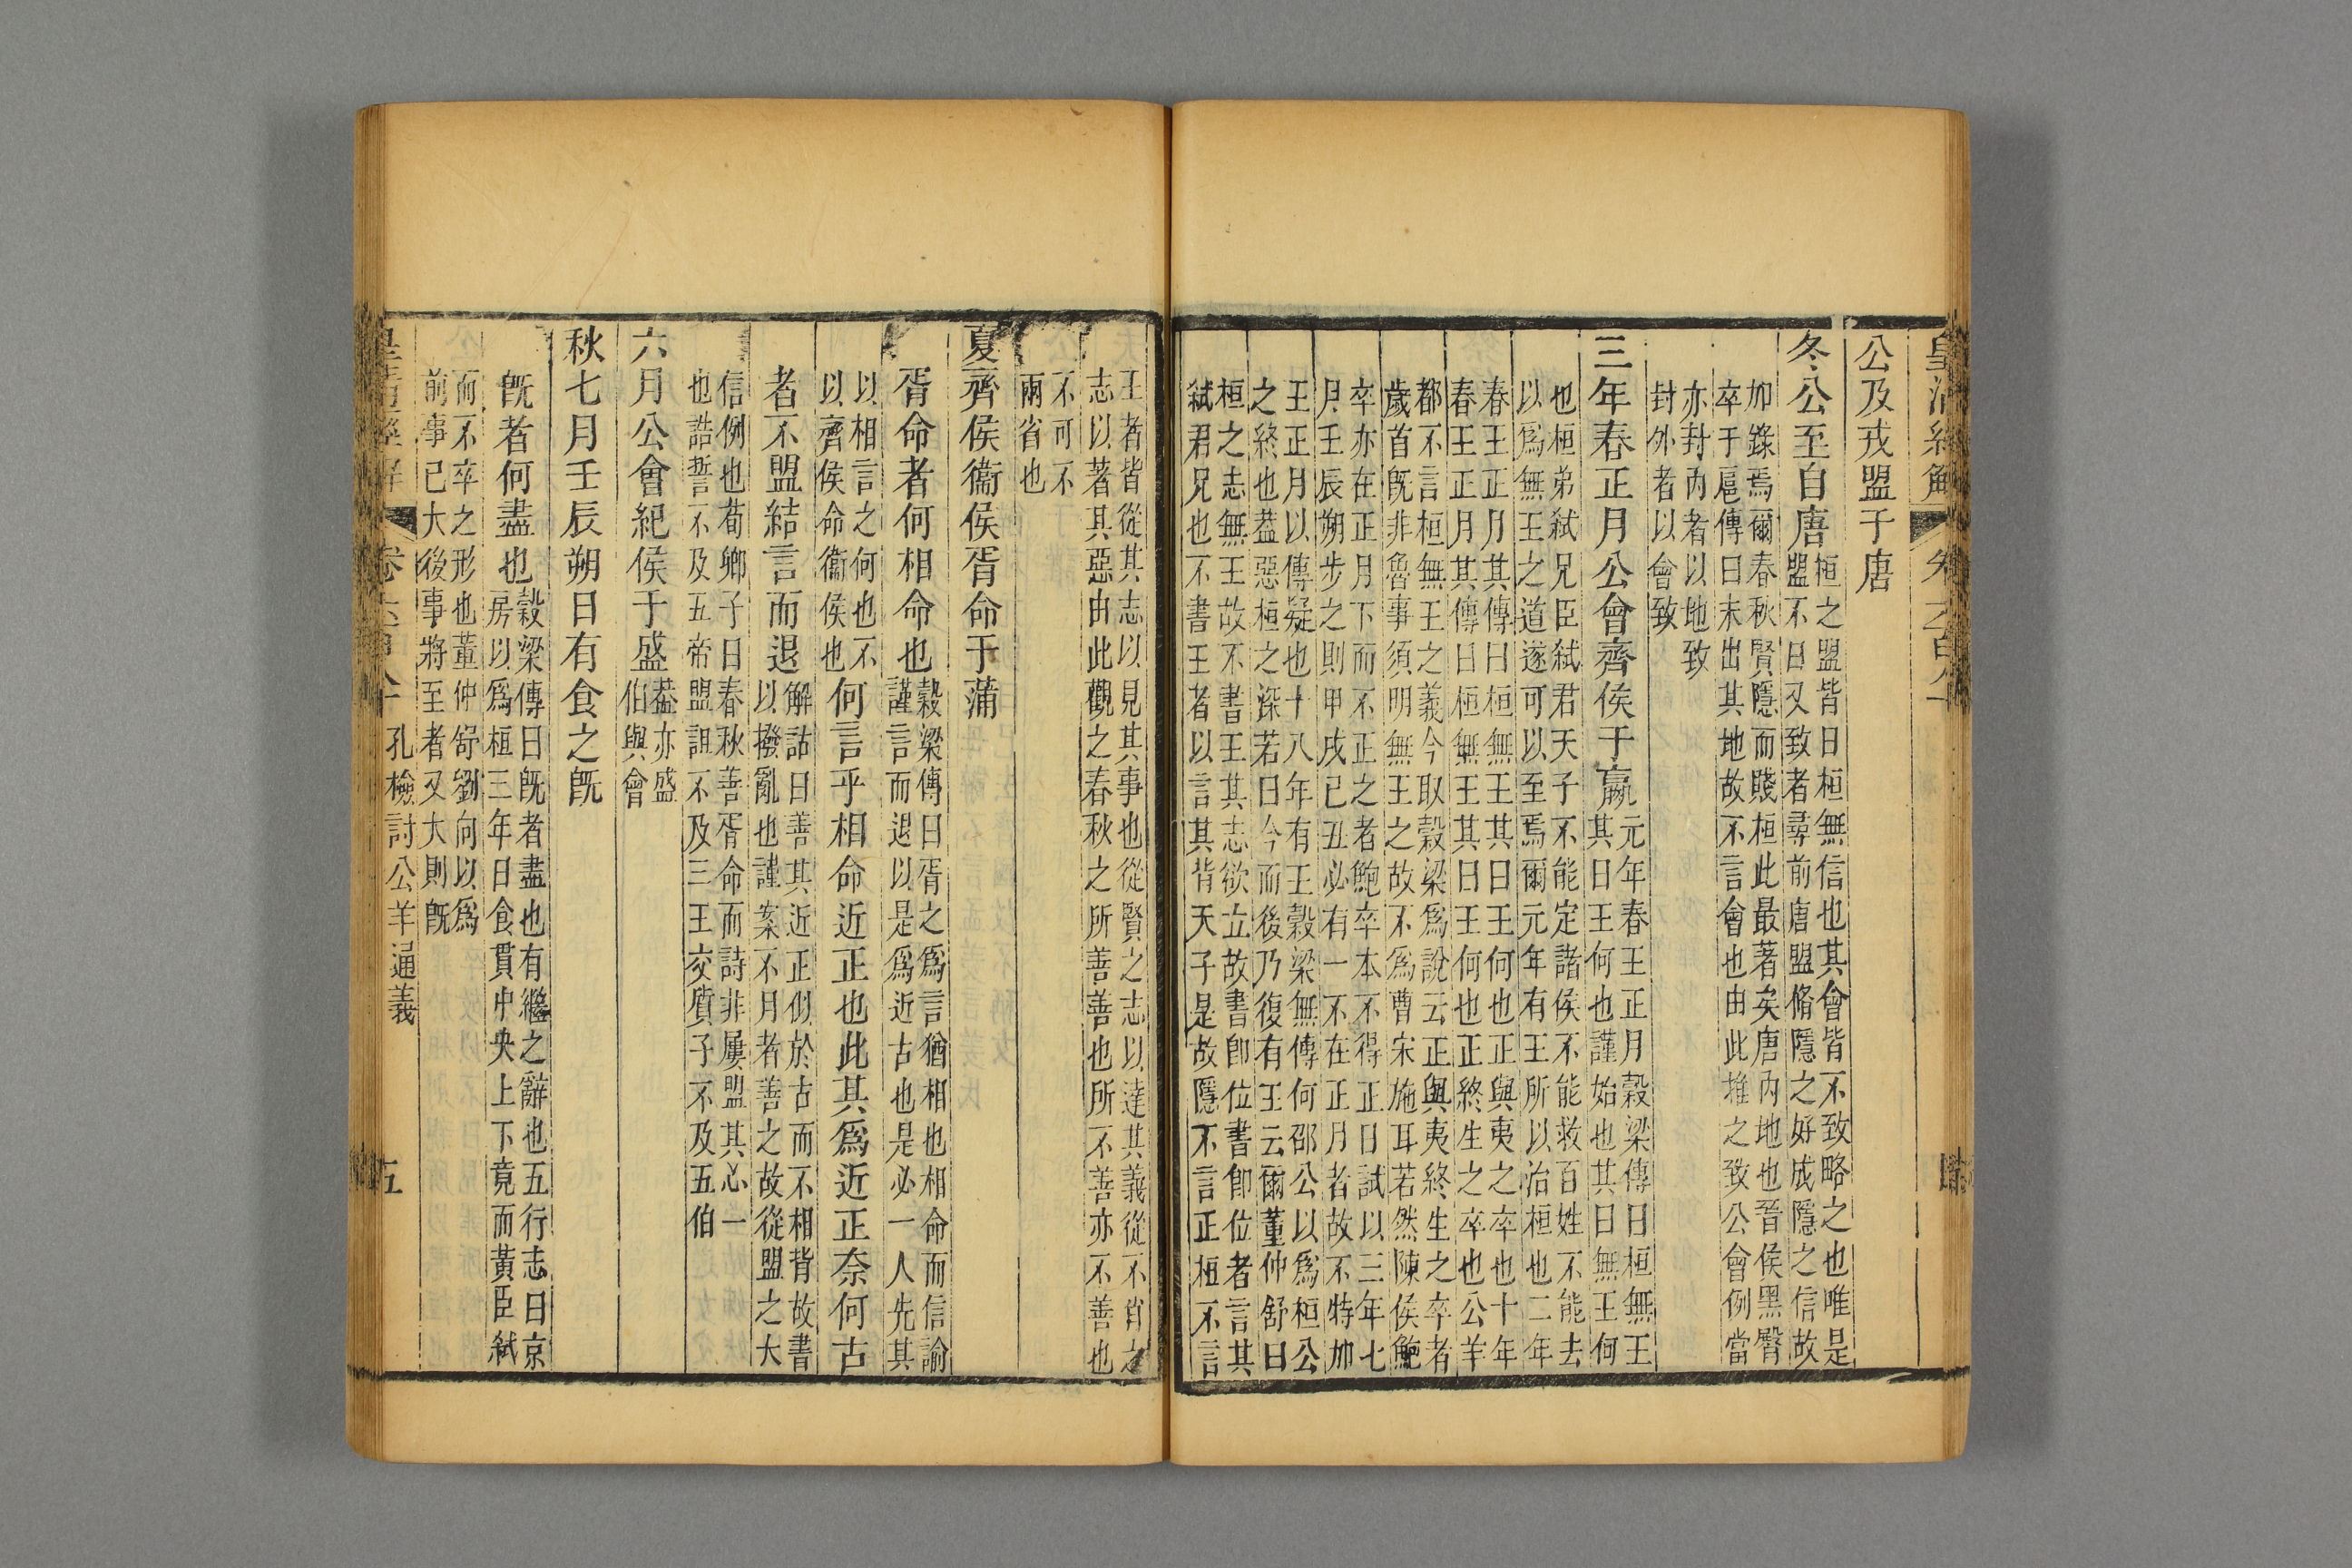 皇清經解
公及戎盟于唐
冬公至自唐
桓之盟皆日桓無信也其會皆不致略之也唯是
盟不日又致者尋前唐盟脩隱之好成隱之信故
加錄焉爾春秋賢隱而賤桓此最著矣唐內地也晉侯黑臀
卒于扈傳曰未出其地故不言會也由此推之致公會例當
亦封內者以地致
封外者以會致
三年春正月公會齊侯于嬴
元年春王正月穀梁傳曰桓無王
其曰王何也謹始也其曰無王何
也桓弟弒兄臣弒君天子不能定諸侯不能救百姓不能去
以爲無王之道遂可以至焉爾元年有王所以治桓也二年
春王正月其傳曰桓無王其曰王何也正與夷之卒也十年
春王正月其傳曰桓無王其曰王何也正終生之卒也公羊
都不言桓無王之義今取穀梁爲說云正與夷終生之卒者
歲首既非魯事須明無王之故不爲曹宋施耳若然陳侯鮑
卒亦在正月下而不正之者鮑卒本不得正日試以三年七
月壬辰朔步之則甲戌己丑必有一不在正月者故不特加
王正月以傳疑也十八年有王穀梁無傳何邵公以爲桓公
之終也葢惡桓之深若曰今而後乃復有王云爾董仲舒曰
桓之志無王故不書王其志欲立故書卽位書卽位者言其
弒君兄也不書王者以言其背天子是故隱不言正桓不言
王者皆從其志以見其事也從賢之志以達其義從不肖之
志以著其惡由此觀之春秋之所善善也所不善亦不善也
不可不
兩省也
夏齊侯衞侯胥命于蒲
胥命者何相命也
穀梁傳曰胥之爲言猶相也相命而信諭
謹言而退以是爲近古也是必一人先其
以相言之何也不
以齊侯命衞侯也
何言乎相命近正也此其爲近正奈何古
者不盟結言而退
解詁曰善其近正似於古而不相背故書
以撥亂也謹案不月者善之故從盟之大
信例也荀卿子曰春秋善胥命而詩非屢盟其心一
也誥誓不及五帝盟詛不及三王交質子不及五伯
六月公會紀侯于盛
葢亦盛
伯與會
秋七月壬辰朔日有食之既
既者何盡也
穀梁傳曰既者盡也有繼之辭也五行志曰京
房以爲桓三年日食貫中央上下竟而黃臣弒
而不卒之形也董仲舒劉向以爲
前事已大後事將至者又大則既
孔檢討公羊通義
五